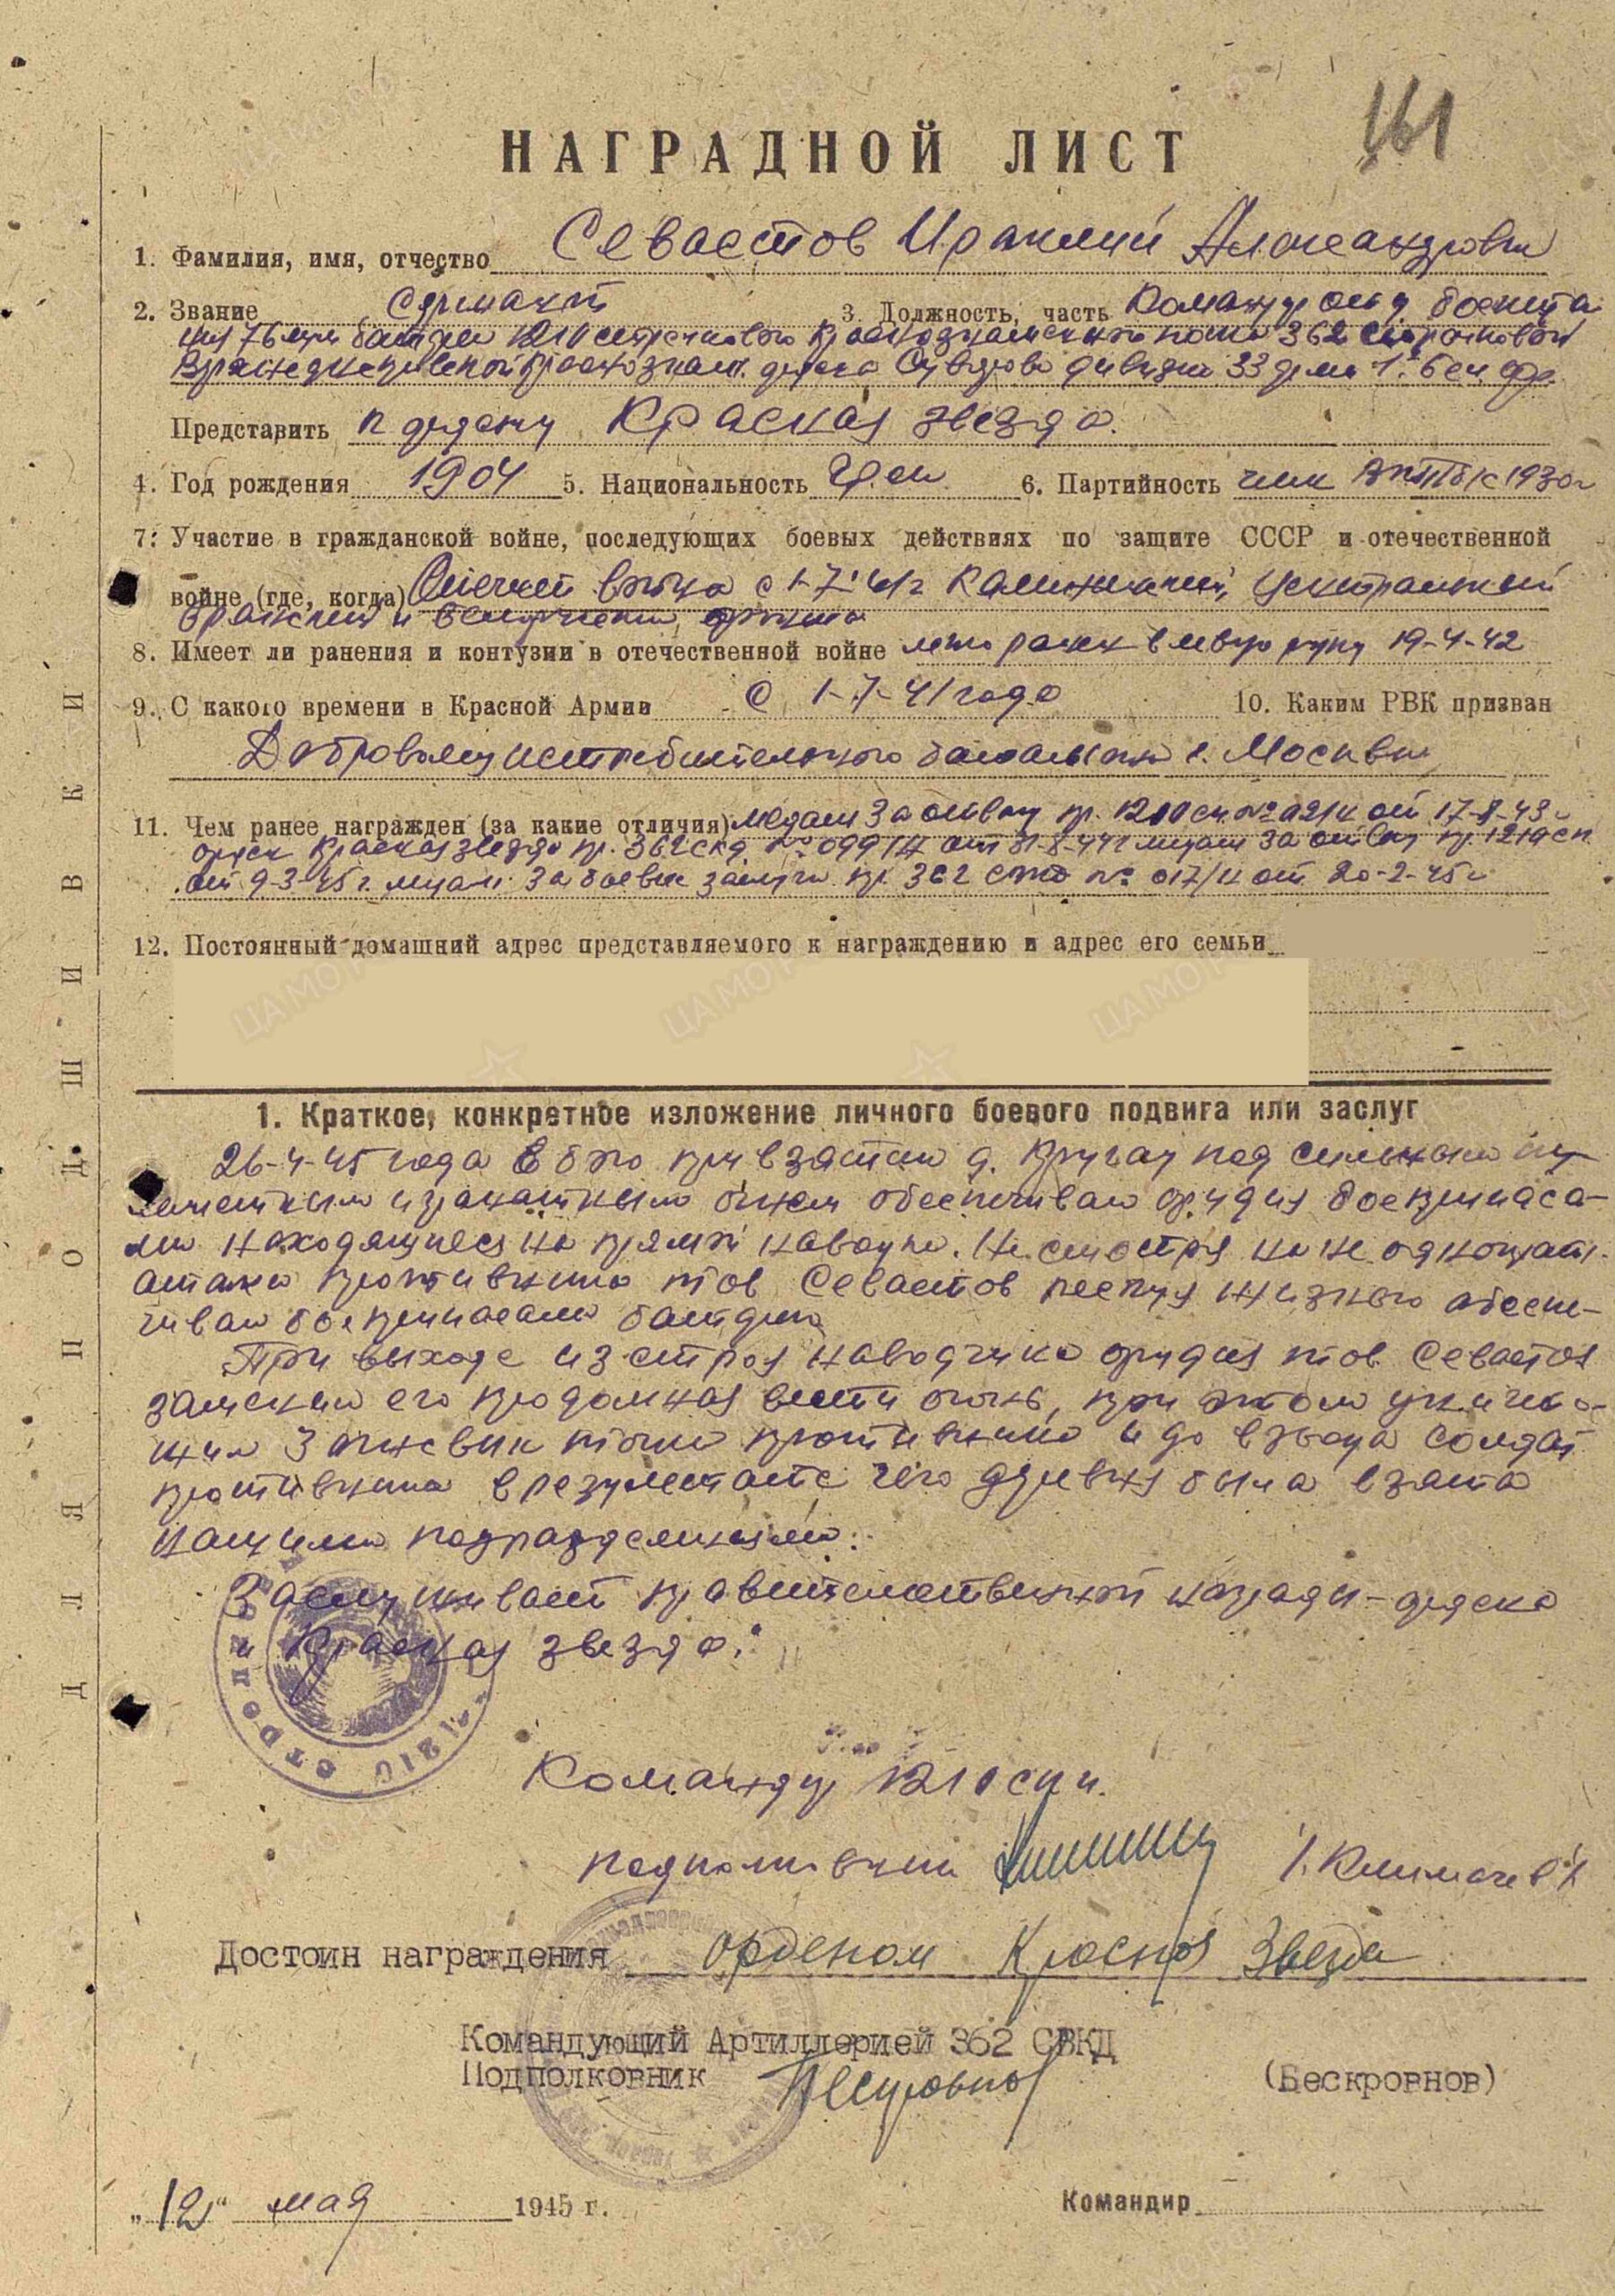 161
НАГРАДНОЙ ЛИСТ
1. Фамилия, имя, отчество Севастов Ираклий Александрович
2. Звание Сержант 3. Должность, часть Командир отд. боепита
ния 76 м/м батареи 1210 стрелкового Краснознаменного полка 362 стрелковой
Верхнеднепровской Краснознам. ордена Суворова дивизии 33 арм. 1. Бел. фр.
Представить к ордену Красная звезда.
4. Год рождения 1904 5. Национальность Грек 6. Партийность член ВКП/б/ с 1930 г
7. Участие в гражданской войне, последующих боевых действиях по защите СССР и отечественной
войне (где, когда) Отечест война с 1-7-41г Калининский, Центральный
Брянский и Белорусский фронта
8. Имеет ли ранения и контузии в отечественной войне легко ранен в левую руку 19-4-42
9. С какого времени в Красной Армии С 1-7-41 года 10. Каким РВК призван
Доброволец истребительного батальона г. Москвы
11. Чем ранее награжден (за какие отличия) Медаль За отвагу пр. 1210 сп № 021/н от 17-8-43 г
орден Красная звезда пр. 362 скд № 099/н от 31-8-44 г медаль За отвагу пр. 1210 сп
от 9-3-45 г. медаль За боевые заслуги пр. 362 № 017/н от 20-2-45 г
12. Постоянный домашний адрес представляемого к награждению и адрес его семьи
1. Краткое, конкретное изложение личного боевого подвига или заслуг
26-4-45 года в бою при взятии д. под сильным пу-
леметным и гранатным огнем обеспечивал орудия боеприпаса-
ми находящиеся на прямой наводке. Не смотря на не однократ.
атаки противника тов Севастов рискуя жизнью обеспе-
чивал боеприпасами батарею
При выходе из строя наводчика орудия тов Севастов
заменил его продолжая вести огонь, при этом уничто-
жил 3 огневых точки противника и до взвода солдат
противника в результате чего деревня была взята
нашими подразделениями.
Заслуживает правительственной награды - ордена
"Красная звезда."
1210 стрелков
Командир 1210 скп.
подполковник /Климачев/
Достоин награждения орденом Красная Звезда
Командующий Артиллерией 362 СВКД
Подполковник (Бескровнов)
„12" мая 1945 г. Командир
ДЛЯ ПОДШИВКИ
ЦАМО РФ